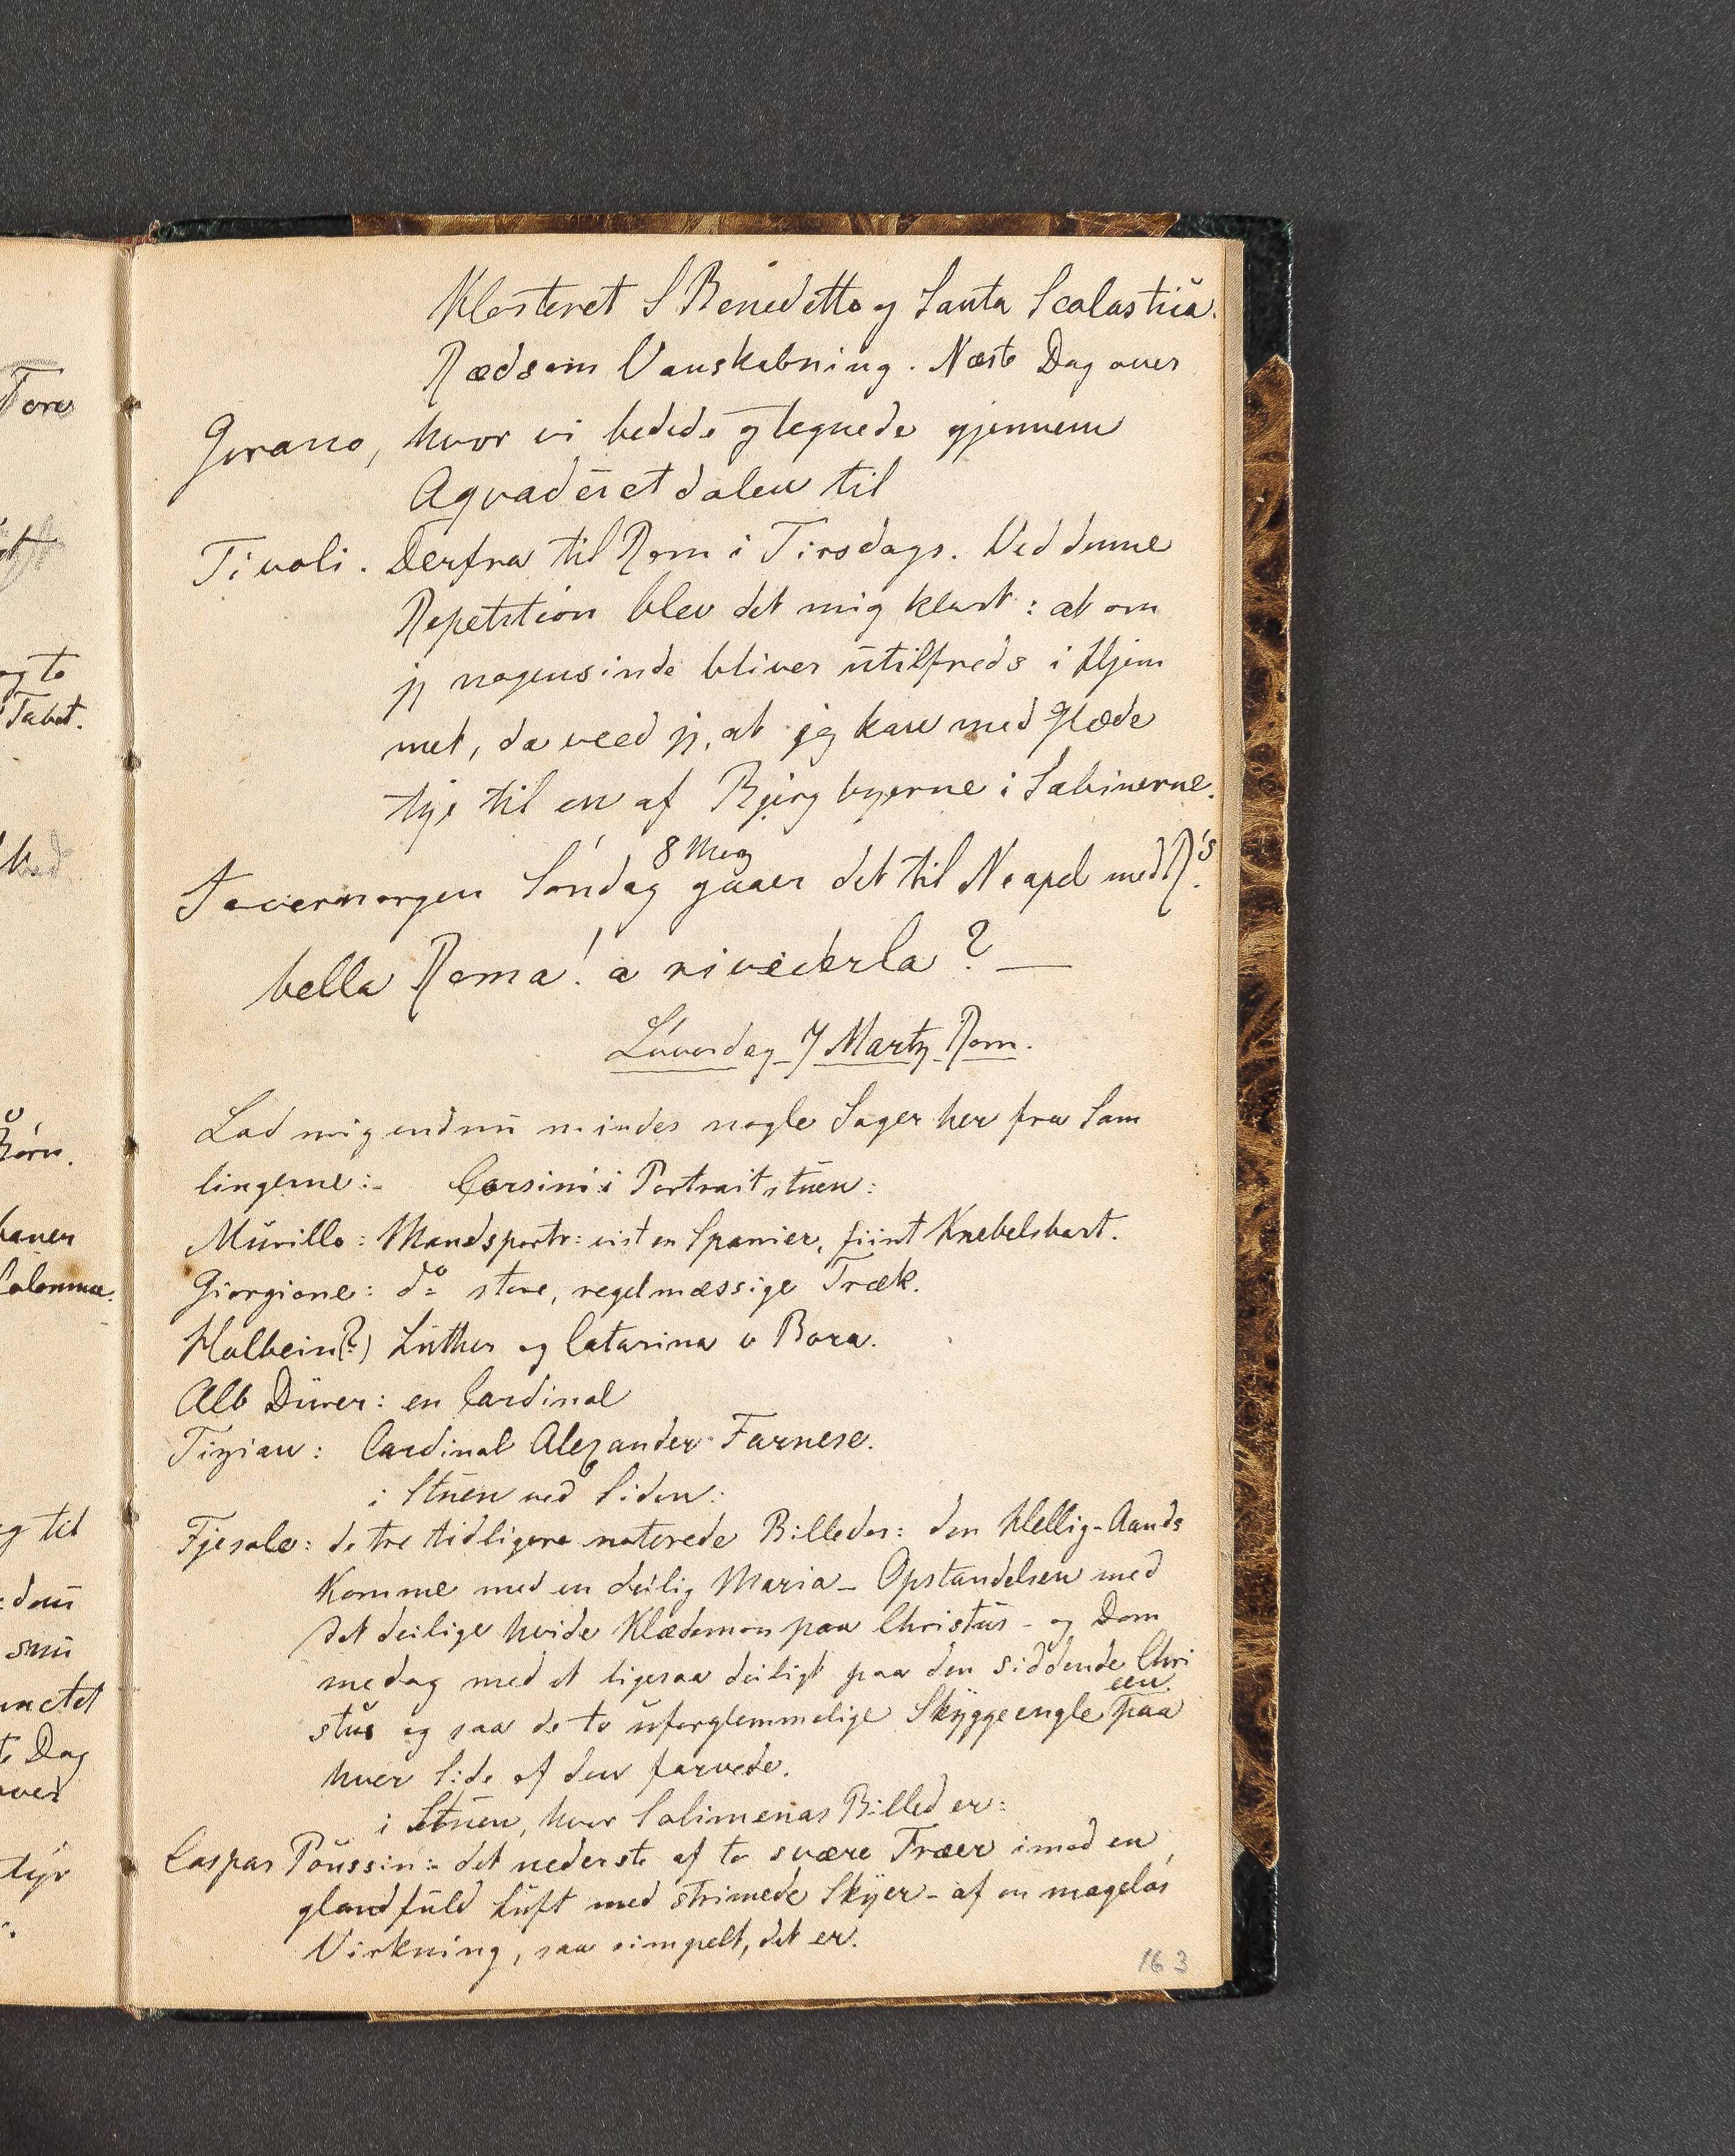 Klosteret S Benedetto og Santa Scolastica.
Rædsom Vanskabning. Næste Dag over
Gerano, hvor vi bedede og tegnede gjennem
Aqvaductdalen til
Tivoli. Derfra til Rom i Tirsdags. Ved denne
Repetition blev det mig klart: at om
jeg nogensinde bliver utilfreds i Hjem
met, da veed jeg, at jeg kan med Glæde
tye til en af Bjergbyerne i Sabinerne.
8 Marz
I overmorgen Søndag gaaer det til Neapel med R's.
bella Roma! a rivederla? —
Løverdag 7 Martz Rom.
Lad mig endnu mindes nogle Sager her fra Sam
lingerne:- Corsini i Portraitstuen:
Murillo: Mandsportr: vist en Spanier, fiint Knebelsbart.
Giorgione: do store, regelmæssige Træk.
Holbein(?) Luther og Catarina v Bora.
Alb Dürer: en Cardinal
Tizian: Cardinal Alexander Farnese.
i Stuen ved Siden:
Fjesole: de tre tidligere noterede Billeder: den Hellig-Aands
Komme med en deilig Maria - Opstandelsen med
det deilige hvide Klædemon paa Christus - og Dom
medag med et ligesaa deiligt paa den siddende Chri
stus og saa de to uforglemmelige Skyggeengle een paa
hver Side af den farvede.
i Stuen, hvor Solimenas Billeder:
Caspar Poussin:- det nederste af to svære Træer imod en
glandfuld Luft med strimede Skyer - af en mageløs
Virkning, saa simpelt, det er.
163
Fore
og to
Tabet.
Colonna.
og til
Dag